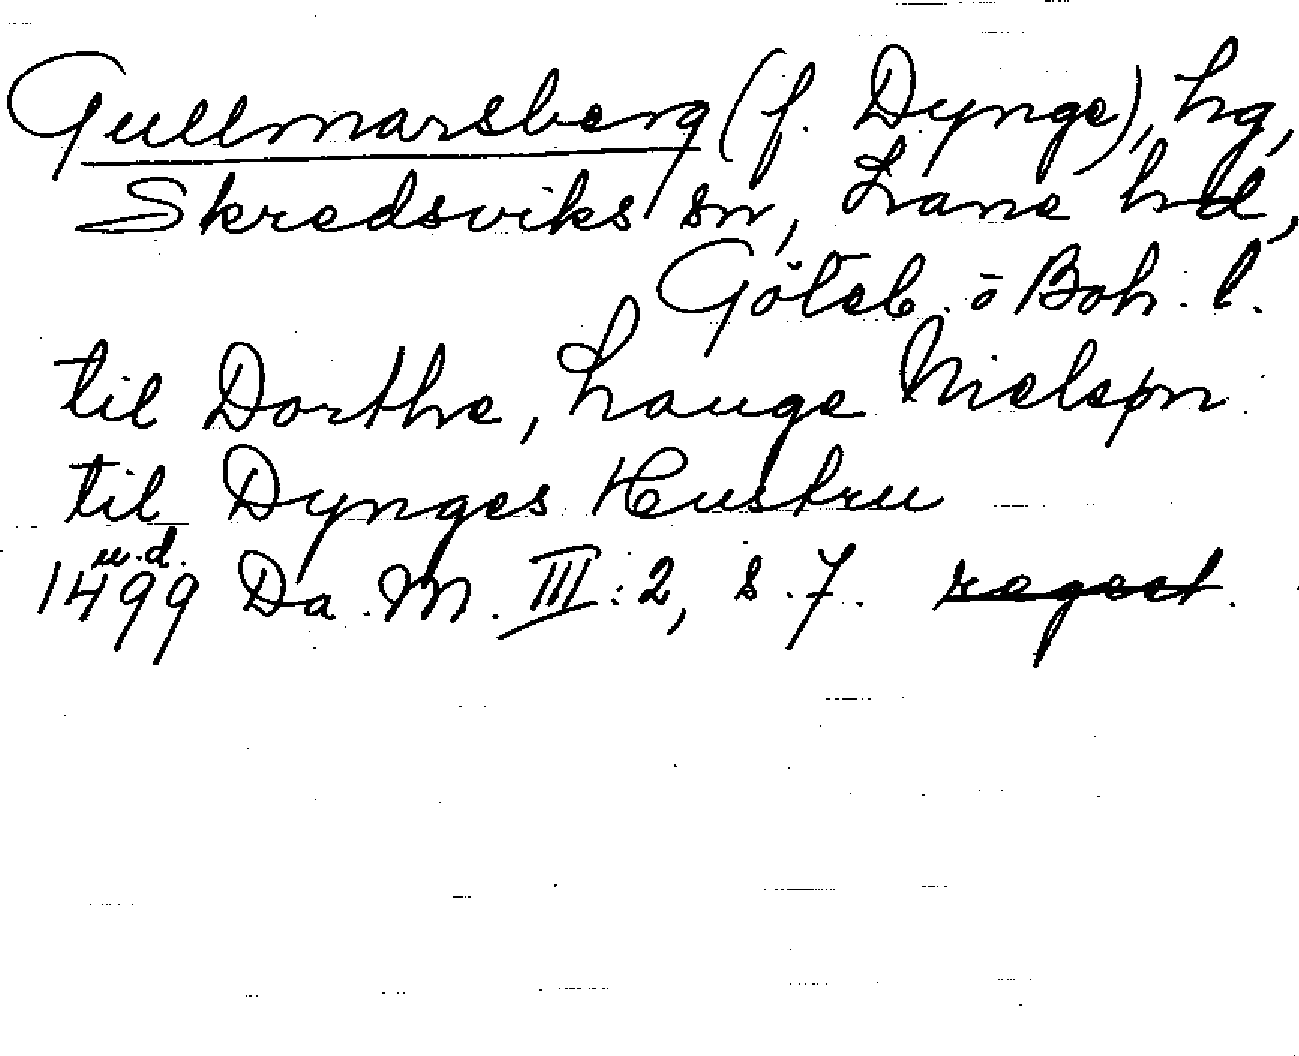 Gullmarsberg (f. Dynge), hg,
Skredsviks sn, Lane hd,
Göteb. o Boh. l.
til Dorthe, Hauge Nielspn
til Dynges Hustru
u.d.
1499 Da.M. III:2, s.7. regest.